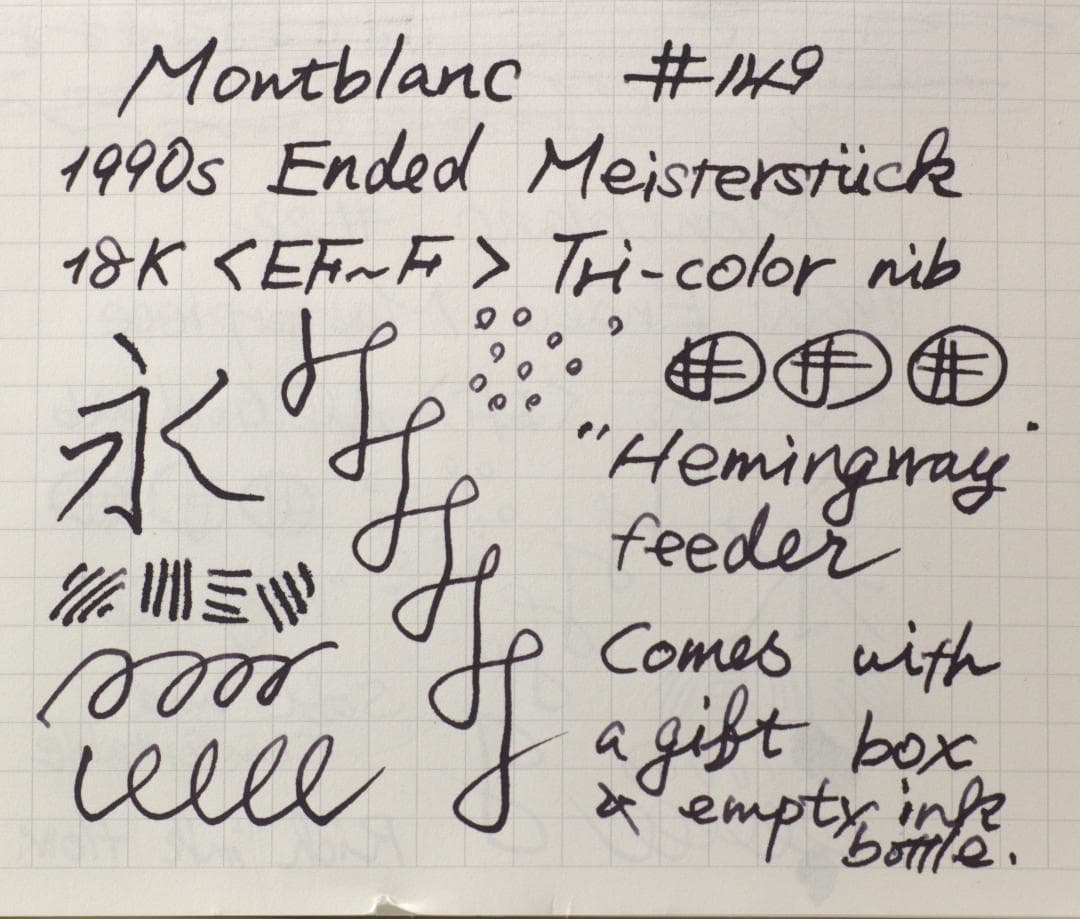 Montblanc #149
1990s Ended Meisterstück
18K <EF~F> Tri-color nib
永
"Hemingway"
feeder
Comes with
a gift box
& empty ink
bottle.